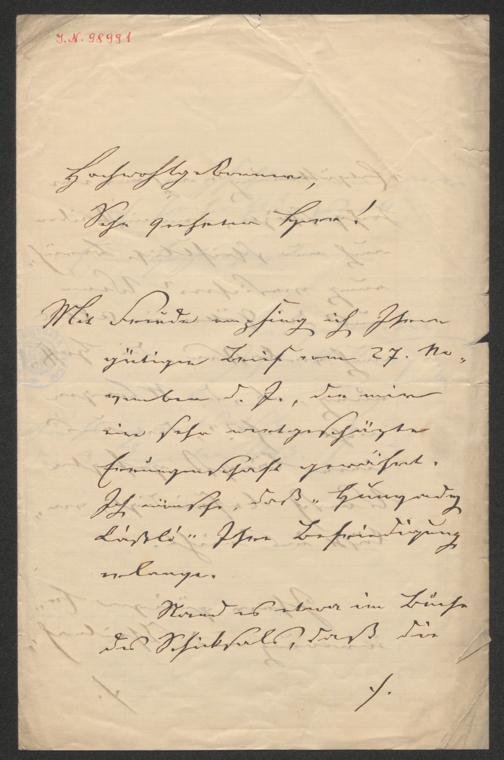 I.N. 98991
Hochwohlgeborener,
Sehr geehrter Herr!
Mit Freude empfing ich Ihren
gütigen Brief vom 27. No-
vember d. J., der mir
eine sehr wertgeschätzte
Errungenschaft gewährt.
Ich wünsche, daß „Hunyady
László" Ihre Befriedigung
erlange.
Stand es etwa im Buche
des Schicksals, daß die
./.